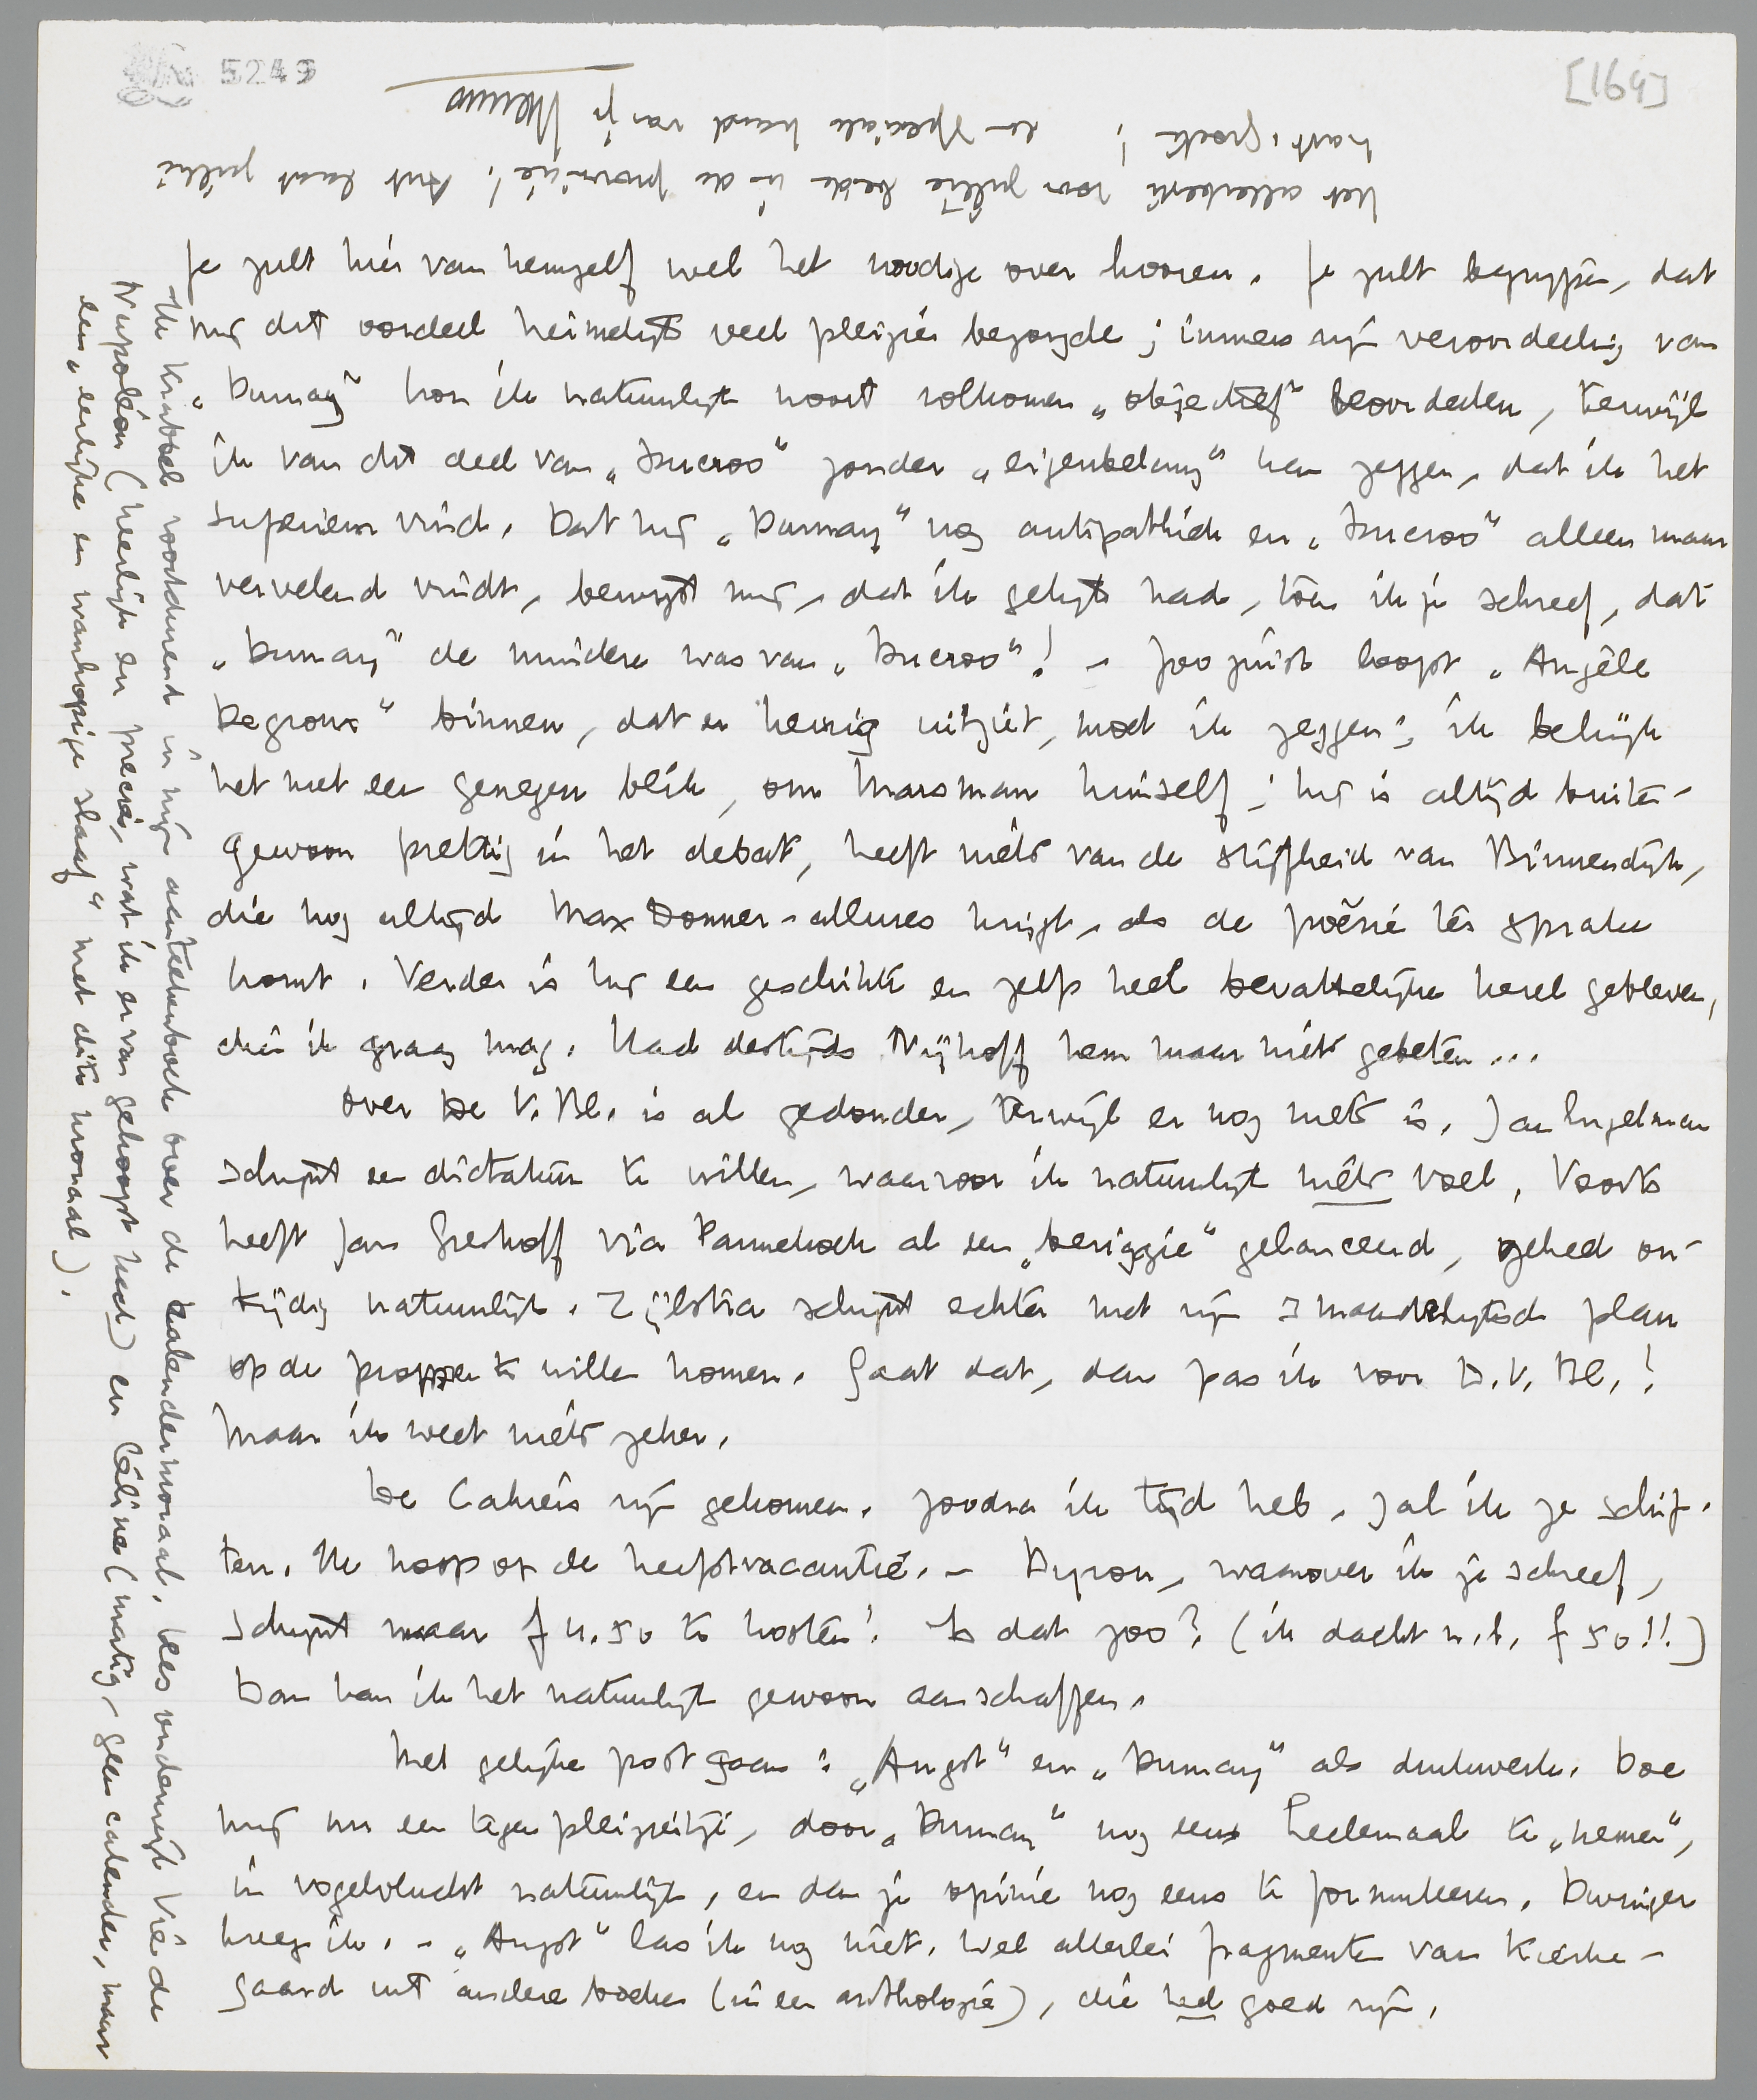 5249
[169]
Je zult hier van hemzelf wel het noodige over hooren. Je zult begrijpen, dat
mij dit oordeel heimelijk veel pleizier bezorgde; immers mijn veroordeeling van
„Dumay” kon ik natuurlijk nooit volkomen „objectief” beoordeelen, terwijl
ik van dit deel van „Ducroo” zonder „eigenbelang” kan zeggen, dat ik het
superieur vind. Dat hij „Dumay” nog antipathiek en „Ducroo” alleen maar
vervelend vindt, bewijst mij, dat ik gelijk had, toen ik je schreef, dat
„Dumay” de mindere was van „Ducroo”! – Zoo juist loopt „Angèle
Degroux” binnen, dat er keurig uitziet, moet ik zeggen; ik bekijk
het met een genegen blik, om Marsman himself; hij is altijd buiten-
gewoon prettig in het debat, heeft niets van de stijfheid van Binnendijk,
die nog altijd Max Donner-allures krijgt, als de poëzie ter sprake
komt. Verder is hij een geschikte en zelfs heel bevattelijke kerel gebleven,
dien ik graag mag. Had destijds Nijhoff hem maar niet gebeten...
Over De V. Bl. is al gedonder, terwijl er nog niets is. Jan Engelman
schijnt een dictatuur te willen, waarvoor ik natuurlijk niets voel. Voorts
heeft Jan Greshoff via Pannekoek al een „beriggie” gelanceerd, geheel on-
tijdig natuurlijk. Zijlstra schijnt echter met zijn 3 maandelijksch plan
op de proppen te willen komen. Gaat dat, dan pas ik voor D. V. Bl.!
Maar ik weet niets zeker.
De Cahiers zijn gekomen. Zoodra ik tijd heb, zal ik ze schif-
ten. Ik hoop op de herfstvacantie. – Byron, waarover ik je schreef,
schijnt maar f 4.50 te kosten! Is dat zoo? (ik dacht n.l. f 50!!)
Dan kan ik het natuurlijk gewoon aanschaffen.
Met gelijke post gaan: „Angst” en „Dumay” als drukwerk. Doe
mij nu een tegenpleiziertje, door „Dumay” nog eens heelemaal te „nemen”,
in vogelvlucht natuurlijk, en dan je opinie nog eens te formuleeren. Duringer
kreeg ik. – „Angst” las ik nog niet. Wel allerlei fragmenten van Kierke-
gaard uit andere boeken (in een anthologie), die heel goed zijn.
Ik krabbel voortdurend in mijn aanteekenboek over de kalendermoraal, lees ondanks Vie de
Napoléon (heerlijk en precies, wat ik ervan gehoopt had) en Céline (matig, geen calender, maar
een „eerlijke en wanhopige slaaf” met dito moraal).
Het allerbeste voor jullie beide in de provincie! Ant laat jullie
hart. groeten! en speciale hand van je Menno